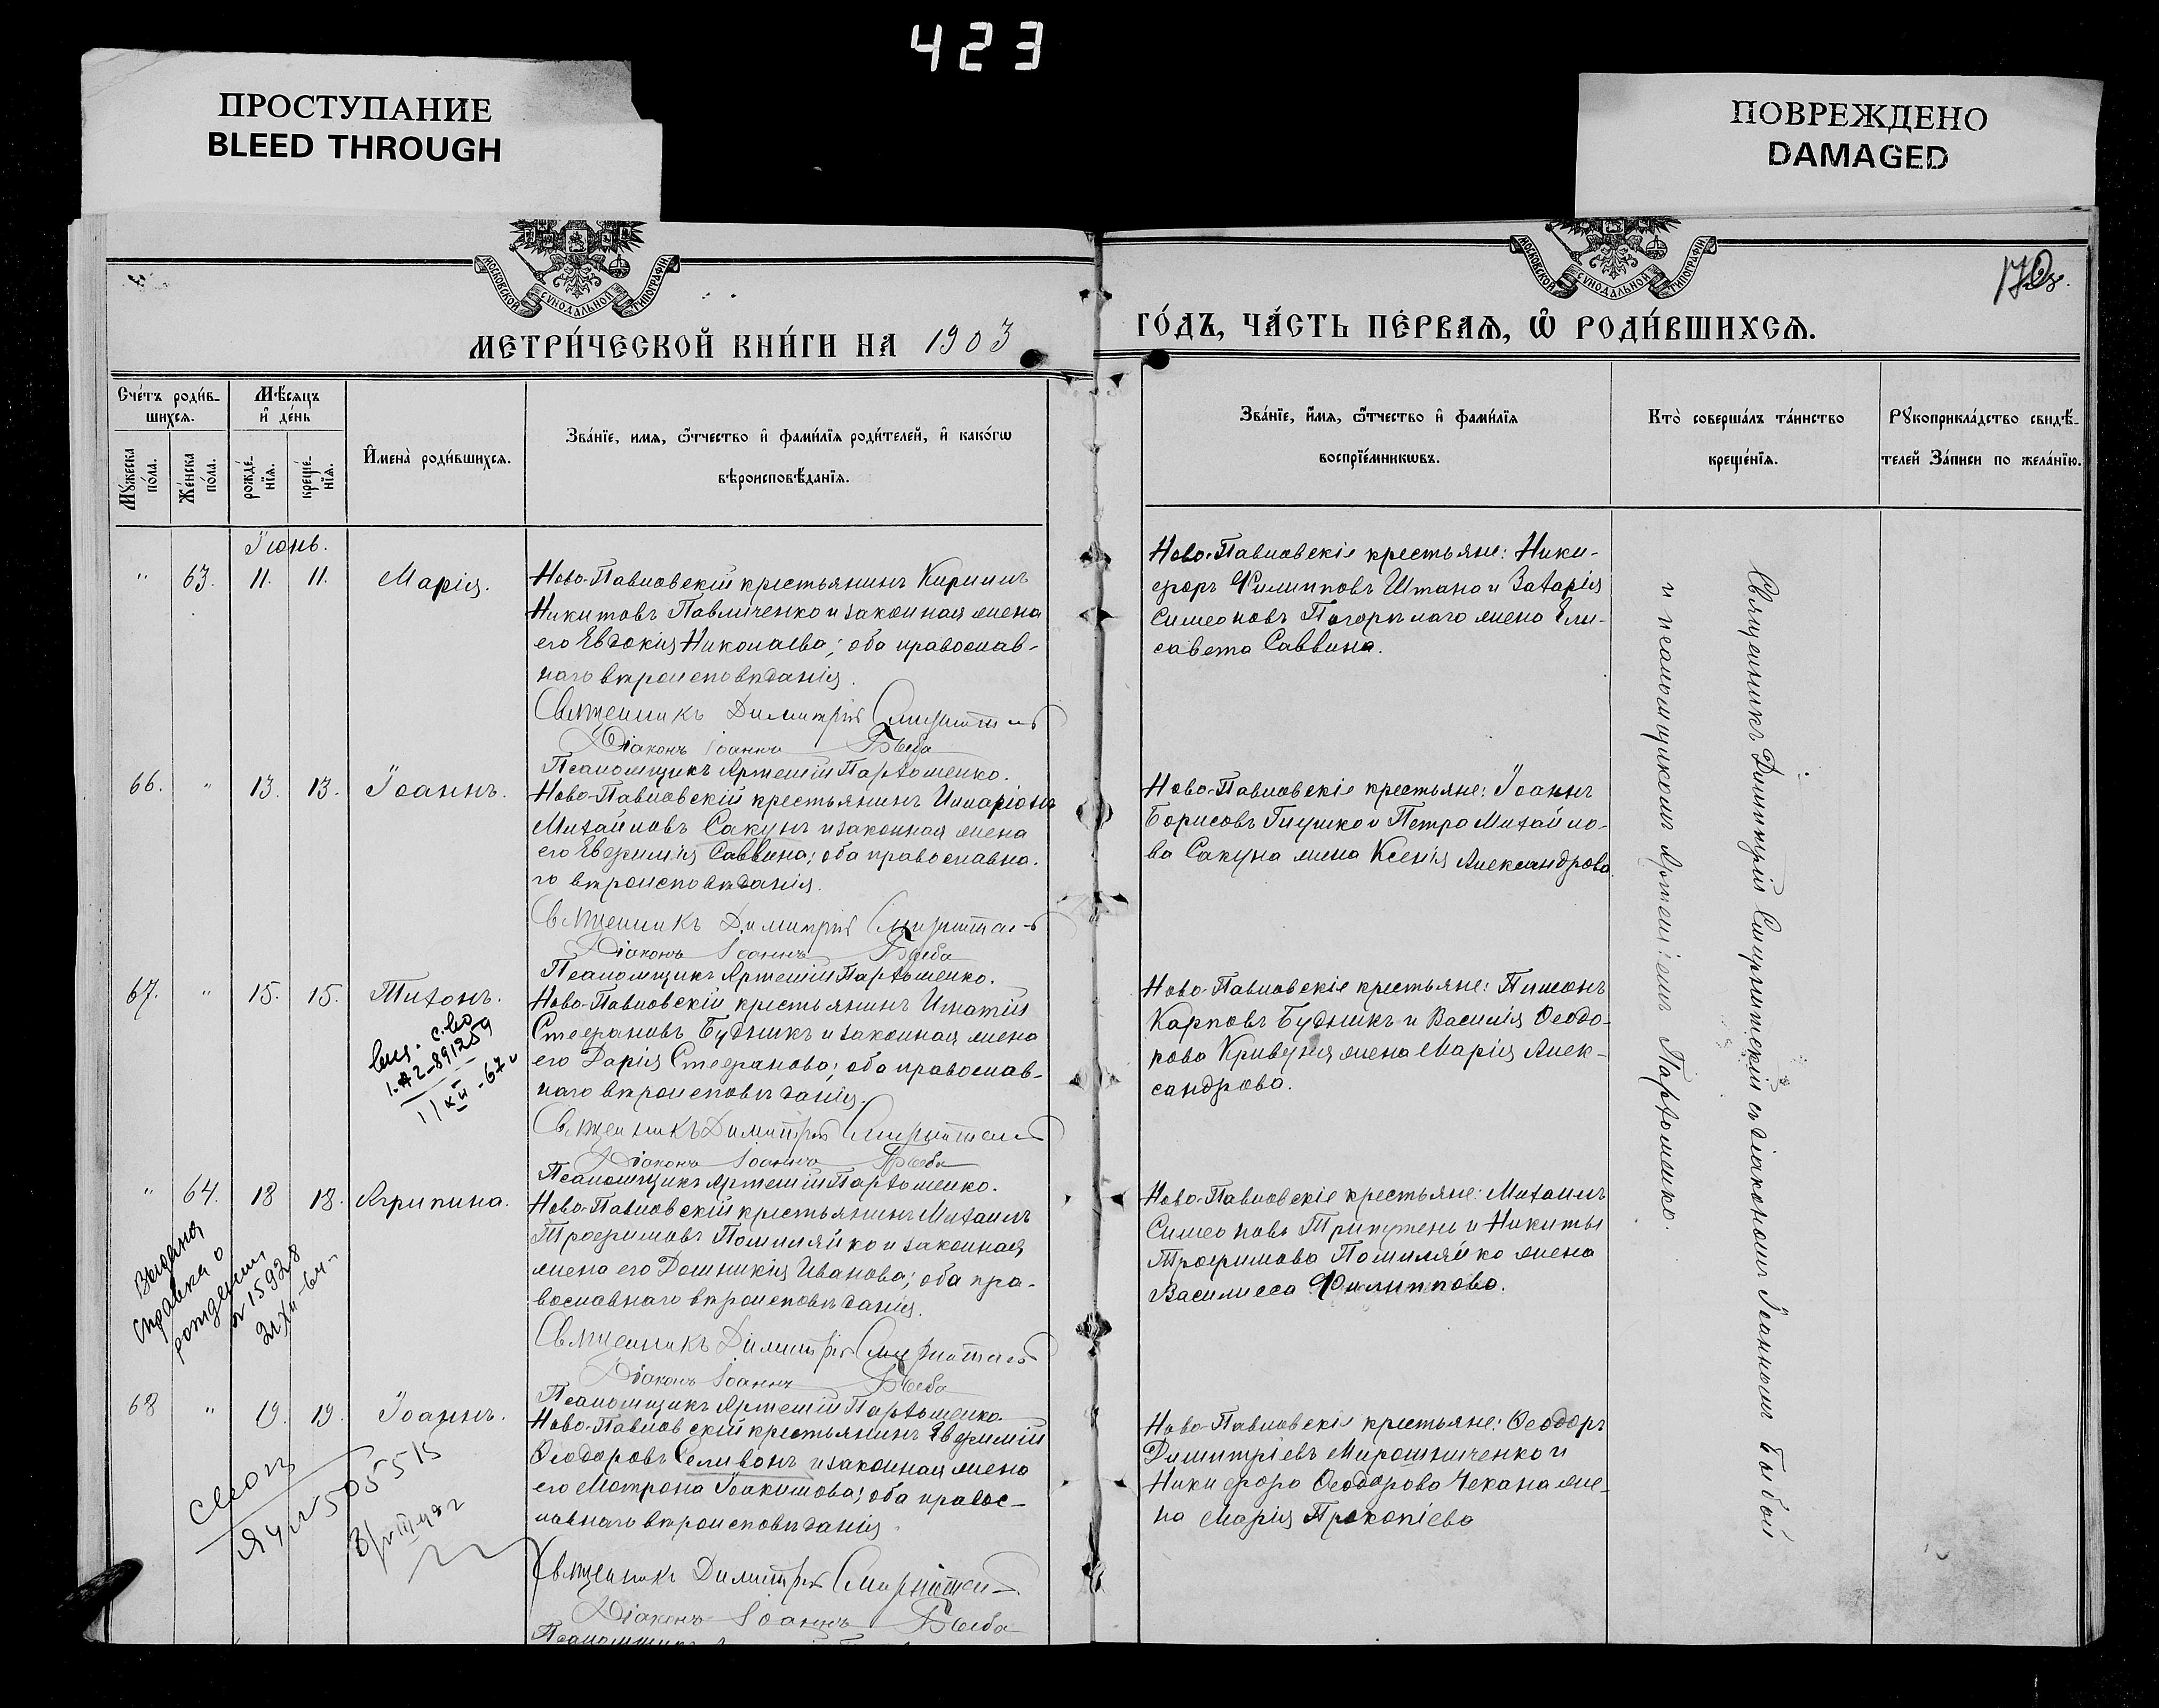 423
ПРОСТУПАНИЕ
BLEED THROUGH
ПОВРЕЖДЕНО
DAMAGED
МОСКОВСКОЙ СѴНОДАЛЬНОЙ ТИПОГРАФІИ
МОСКОВСКОЙ СѴНОДАЛЬНОЙ ТИПОГРАФІИ
МЕТРИ́ЧЕСКОЙ КНИ́ГИ НА 1903
ГО́ДЪ, ЧА́СТЬ ПЕ́РВАѦ, Ѡ҆ РОДИ́ВШИХСѦ.
Сче́тъ роди́в-
шихсѧ.
Мѣ́сѧцъ
и҆ де́нь
Мꙋ́жеска
по́ла.
Же́нска
по́ла.
рожде́-
нїѧ.
креще́-
нїѧ.
И҆мена̀ роди́вшихсѧ.
Зва́нїе, имѧ, ѻ҆́тчество и҆ фами́лїѧ роди́телей, и҆ како́гѡ
вѣроисповѣ́данїѧ.
Зва́нїе, и҆́мѧ, ѻ҆́тчество и҆ фами́лїѧ
воспрїе́мникѡвъ.
Кто̀ соверша́лъ та́инство
креще́нїѧ.
Рꙋкоприкла́дство свидѣ́-
телей За́писи по жела́нїю.
Іюнь.
" 63. 11. 11. Марія.
Ново-Павловскій крестьянинъ Кириллъ
Никитовъ Павличенко и законная жена
его Евдокія Николаева; оба православ-
наго вѣроисповѣданія.
Священникъ Димитрій
Діаконъ Іоаннъ Быба
Псаломщикъ Артемій Пархоменко.
Ново-Павловскіе крестьяне: Ники-
форъ Филипповъ Штано и Захарія
Симеоновъ Погорѣлаго жена Ели-
савета Саввина.
66. " 13. 13. Іоаннъ.
Ново-Павловскій крестьянинъ Илларіонъ
Михайловъ Сакунъ и законная жена
его Евфимія Саввина; оба православна-
го вѣроисповѣданія.
Священникъ Димитрій
Діаконъ Іоаннъ Быба
Псаломщикъ Артемій Пархоменко.
Ново-Павловскіе крестьяне: Іоаннъ
Борисовъ Глушко и Петра Михайло-
ва Сакуна жена Ксенія Александрова.
67. " 15. 15. Тихонъ.
1.А2-891259
11/XII-67г
Ново-Павловскій крестьянинъ Игнатій
Стефановъ Будникъ и законная жена
его Дарія Стефанова; оба православ-
наго вѣроисповѣданія.
Священникъ Димитрій
Діаконъ Іоаннъ Быба
Псаломщикъ Артемій Пархоменко.
Ново-Павловскіе крестьяне: Пименъ
Карповъ Будникъ и Василія Ѳеодо-
рова Кривуна жена Марія Алек-
сандрова.
" 64. 18 18. Агрипина.
Выдана
справка о
рождении
№ 15928
Ново-Павловскій крестьянинъ Михаилъ
Трофимовъ Помиляйко и законная
жена его Домникія Иванова; оба пра-
вославнаго вѣроисповѣданія.
Священникъ Димитрій
Діаконъ Іоаннъ Быба
Псаломщикъ Артемій Пархоменко.
Ново-Павловскіе крестьяне: Михаилъ
Симеоновъ Трипутень и Никиты
Трофимова Помиляйко жена
Василисса Филиппова.
68 " 19. 19. Іоаннъ.
505515
Ново-Павловскій крестьянинъ Евфимій
Ѳеодоровъ Селивонъ и законная жена
его Матрона Іоакимова; оба правос-
лавнаго вѣроисповѣданія.
Священникъ Димитрій
Діаконъ Іоаннъ Быба
Ново-Павловскіе крестьяне: Ѳеодоръ
Димитріевъ Мирошниченко и
Никифора Ѳеодорова Чекана же-
на Марія Прокопіева
Священникъ Димитрій съ діакономъ Іоанномъ Быбой
и псаломщикомъ Артеміемъ Пархоменко.